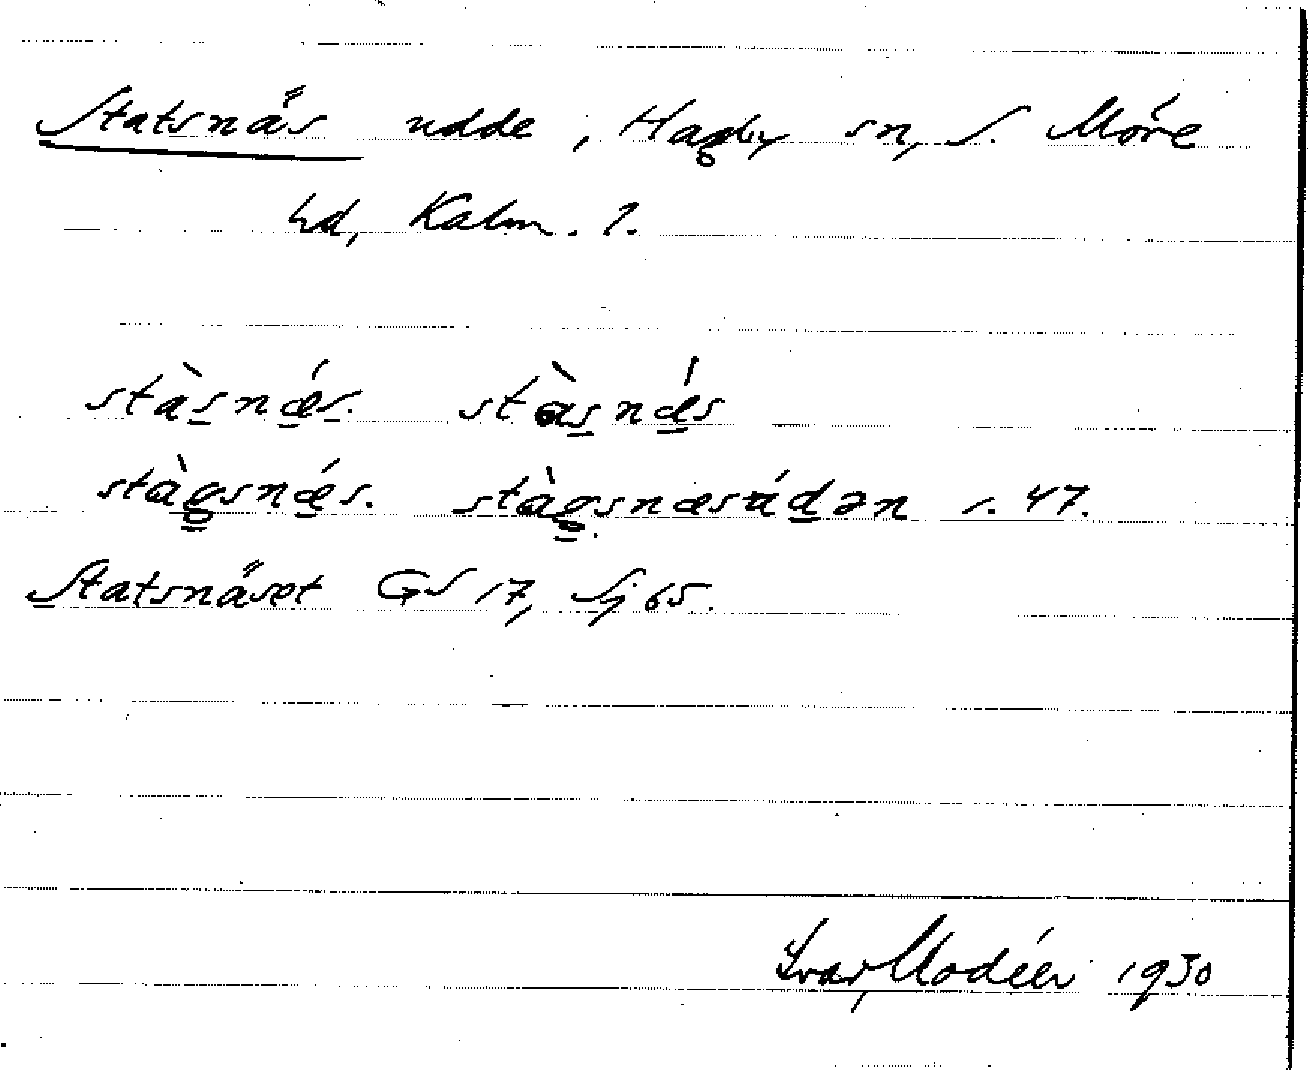 Statsnäs udde, Hagby sn, S. Möre
hd, Kalm. l.
stàsnǽs. stàsnǽs
stàgsnǽs. stàgsnæsúdən s. 47.
Statsnäset GS 17, Sj 65.
Ivar Modéer 1930